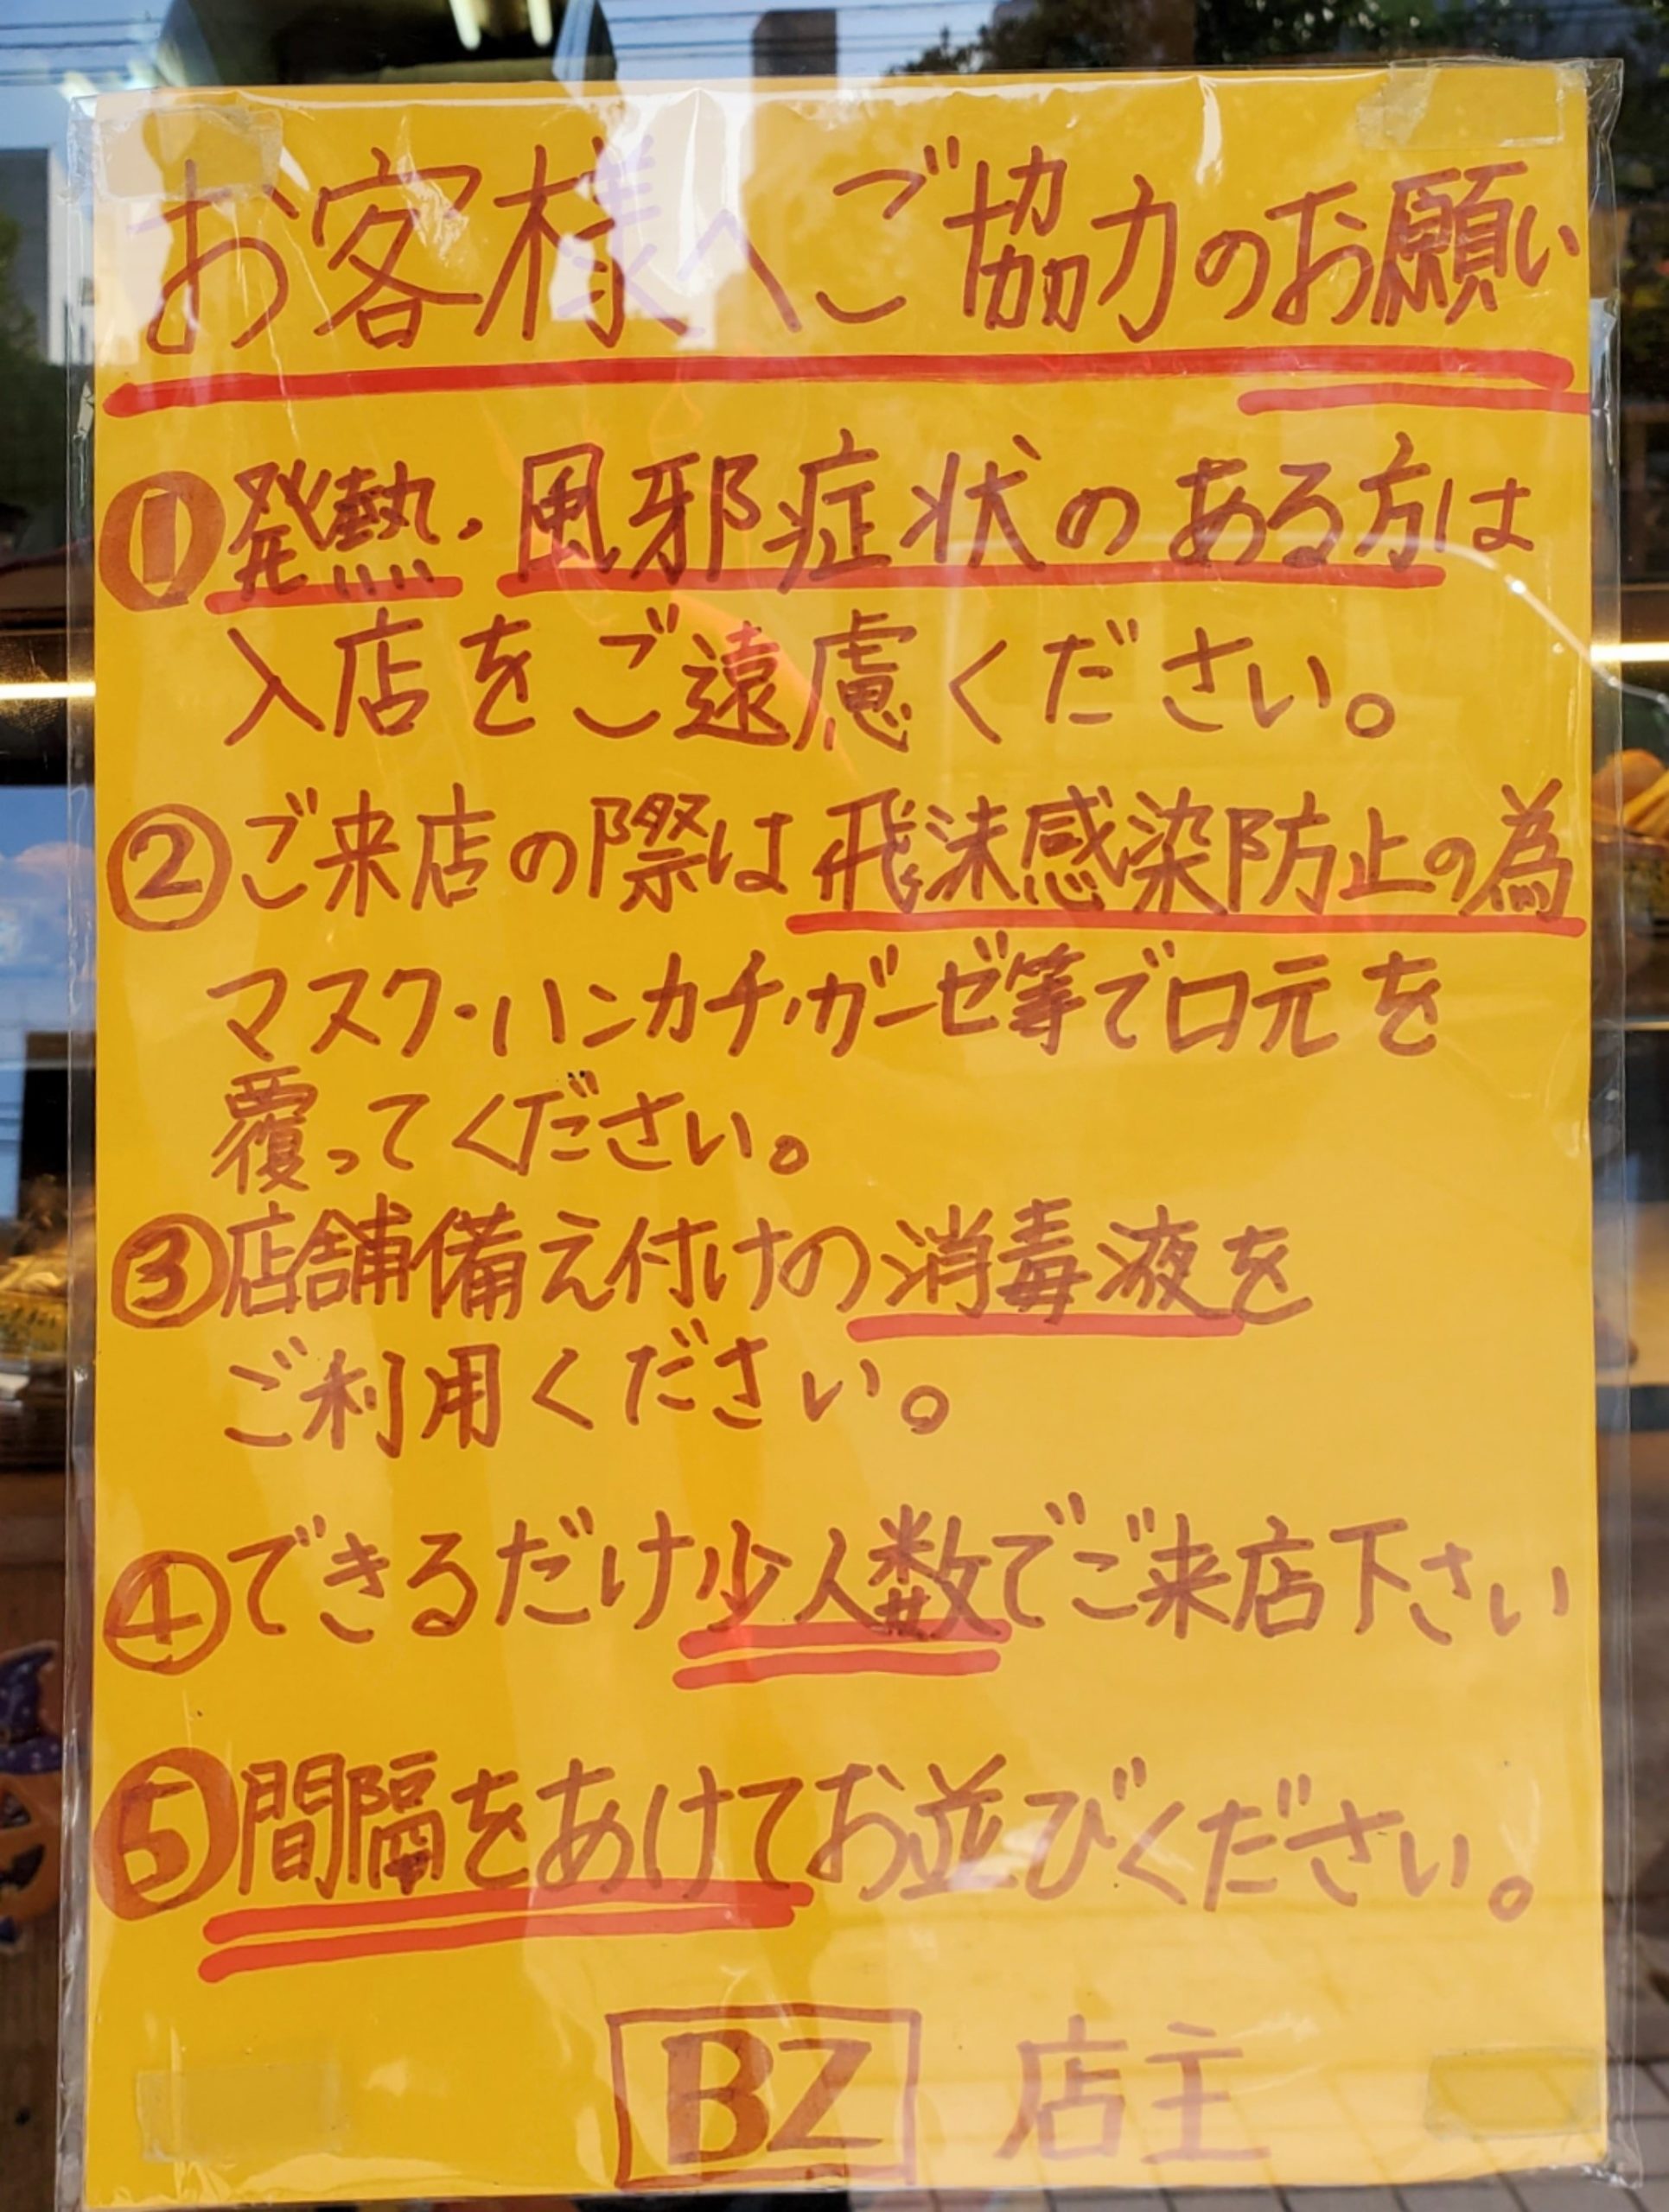 お客様へご協力のお願い
①発熱・風邪症状のある方は
入店をご遠慮ください。
②ご来店の際は飛沫感染防止の為
マスク・ハンカチ・ガーゼ等で口元を
覆ってください。
③店舗備え付けの消毒液を
ご利用ください。
④できるだけ少人数でご来店下さい
⑤間隔をあけてお並びください。
BZ 店主